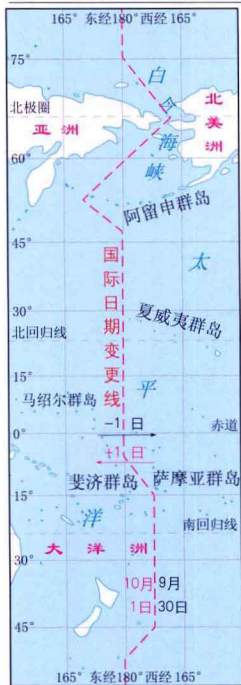 165° 东经180°西经 165°
75°
白令海峡
北极圈
亚洲
北美洲
60°
阿留申群岛
45°
国际日期变更线
太平洋
30°
夏威夷群岛
北回归线
15°
马绍尔群岛
-1 日
赤道
0°
+1 日
斐济群岛 萨摩亚群岛
15°
南回归线
大洋洲
30°
10月 9月
1日 30日
45°
165° 东经180°西经 165°